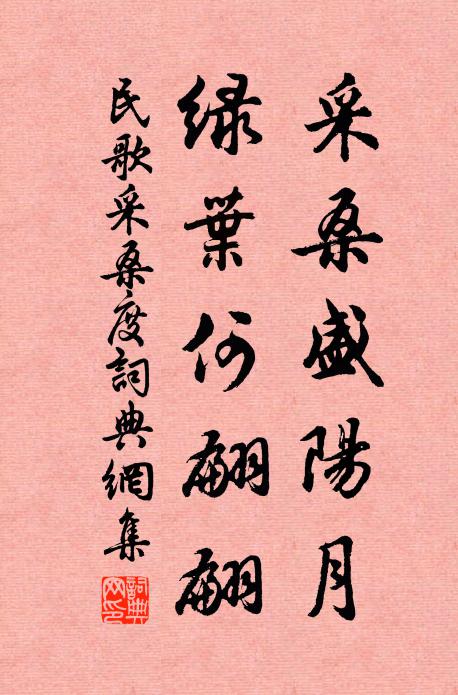 采桑盛陽月
綠葉何翩翩
民歌采桑度詞典網集
詞典網印